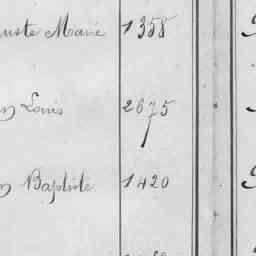 uste Marie 1358
n Louis 2675
n Baptiste 1420